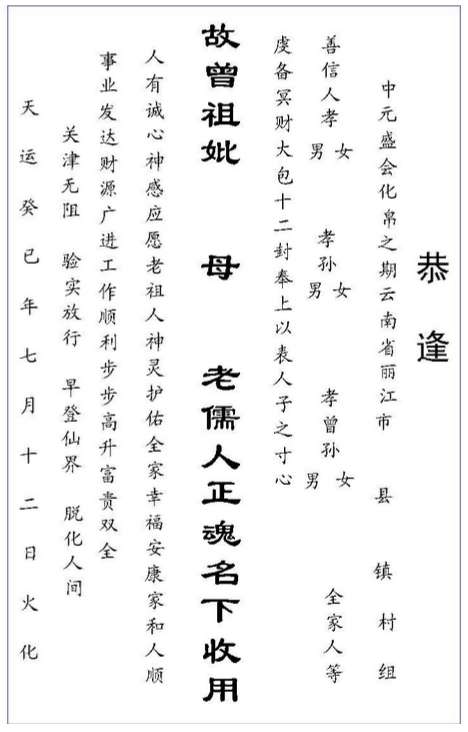 恭逢
中元盛会化帛之期云南省丽江市 县 镇 村 组
善信人孝男女 孝孙男女 孝曾孙男女 全家人等
虔备冥财大包十二封奉上以表人子之寸心
故曾祖妣 母 老儒人正魂名下收用
人有诚心神感应愿老祖人神灵护佑全家幸福安康家和人顺
事业发达财源广进工作顺利步步高升富贵双全
关津无阻 验实放行 早登仙界 脱化人间
天运癸已年七月十二日火化